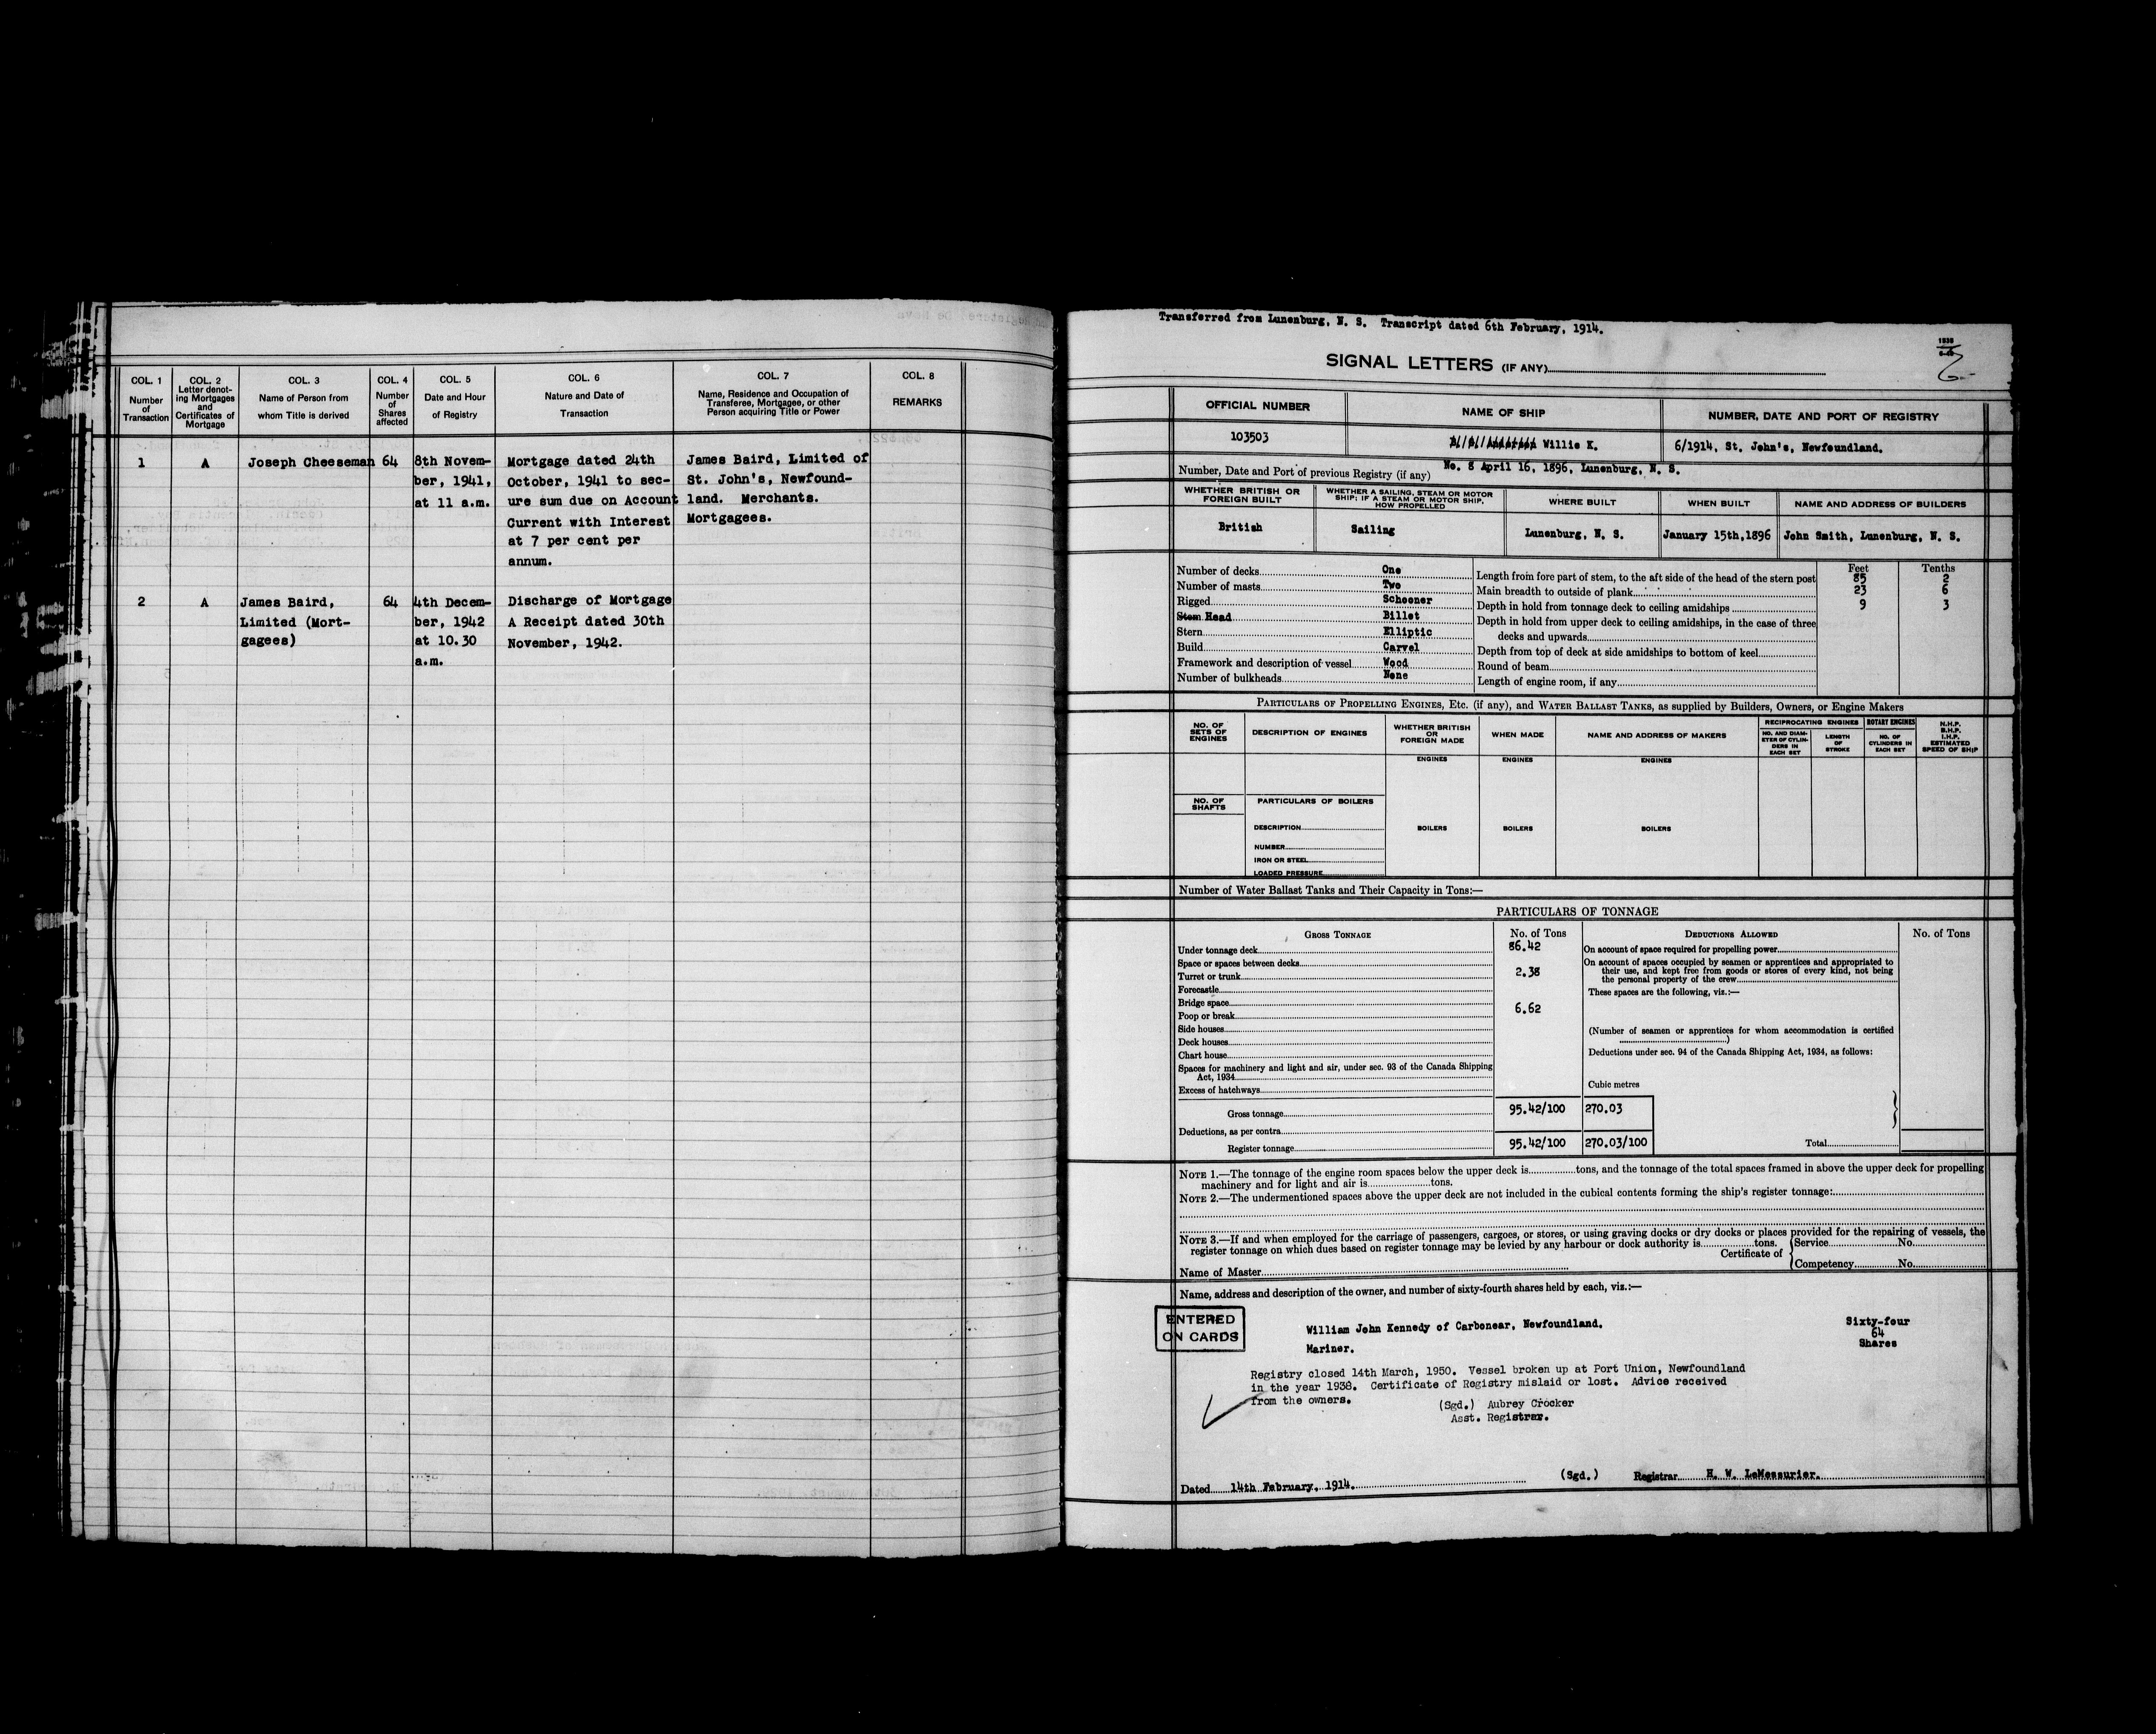 COL. 1
Number
of
Transaction
COL. 2
Letter denot-
ing Mortgages
and
Certificates of
Mortgage
COL. 3
Name of Person from
whom Title is derived
COL. 4
Number
of
Shares
affected
COL. 5
Date and Hour
of Registry
COL. 6
Nature and Date of
Transaction
COL. 7
Name, Residence and Occupation of
Transferee, Mortgagee, or other
Person acquiring Title or Power
COL. 8
REMARKS
1
A
Joseph Cheeseman
64
8th Novem-
ber, 1941,
at 11 a.m.
Mortgage dated 24th
October, 1941 to sec-
ure sum due on Account
Current with Interest
at 7 per cent per
annum.
James Baird, Limited of
St. John's, Newfound-
land. Merchants.
Mortgagees.
2
A
James Baird,
Limited (Mort-
gagees)
64
4th Decem-
ber, 1942
at 10.30
a.m.
Discharge of Mortgage
A Receipt dated 30th
November, 1942.
Transferred from Lunenburg, N. S. Transcript dated 6th February, 1914.
SIGNAL LETTERS (IF ANY)
OFFICIAL NUMBER
NAME OF SHIP
NUMBER, DATE AND PORT OF REGISTRY
103503
Willie K.
6/1914, St. John's, Newfoundland.
Number, Date and Port of previous Registry (if any) No. 8 April 16, 1896, Lunenburg, N. S.
WHETHER BRITISH OR
FOREIGN BUILT
WHETHER A SAILING, STEAM OR MOTOR
SHIP; IF A STEAM OR MOTOR SHIP,
HOW PROPELLED
WHERE BUILT
WHEN BUILT
NAME AND ADDRESS OF BUILDERS
British
Sailing
Lunenburg, N. S.
January 15th,1896
John Smith, Lunenburg, N. S.
Number of decks One
Number of masts Two
Rigged Schooner
Stem Head Billet
Stern Elliptic
Build Carvel
Framework and description of vessel Wood
Number of bulkheads None
Feet Tenths
Length from fore part of stem, to the aft side of the head of the stern post 85 2
Main breadth to outside of plank 23 6
Depth in hold from tonnage deck to ceiling amidships 9 3
Depth in hold from upper deck to ceiling amidships, in the case of three
decks and upwards
Depth from top of deck at side amidships to bottom of keel
Round of beam
Length of engine room, if any
PARTICULARS OF PROPELLING ENGINES, ETC. (if any), and WATER BALLAST TANKS, as supplied by Builders, Owners, or Engine Makers
NO. OF
SETS OF
ENGINES
DESCRIPTION OF ENGINES
WHETHER BRITISH
OR
FOREIGN MADE
WHEN MADE
NAME AND ADDRESS OF MAKERS
RECIPROCATING ENGINES
NO. AND DIAM-
ETER OF CYLIN-
DERS IN
EACH SET
LENGTH
OF
STROKE
ROTARY ENGINES
NO. OF
CYLINDERS IN
EACH SET
N.H.P.
B.H.P.
I.H.P.
ESTIMATED
SPEED OF SHIP
ENGINES
ENGINES
ENGINES
NO. OF
SHAFTS
PARTICULARS OF BOILERS
DESCRIPTION
BOILERS
BOILERS
BOILERS
NUMBER
IRON OR STEEL
LOADED PRESSURE
Number of Water Ballast Tanks and Their Capacity in Tons:—
PARTICULARS OF TONNAGE
GROSS TONNAGE
No. of Tons
Under tonnage deck 86.42
Space or spaces between decks
Turret or trunk 2.38
Forecastle
Bridge space
Poop or break 6.62
Side houses
Deck houses
Chart house
Spaces for machinery and light and air, under sec. 93 of the Canada Shipping
Act, 1934
Excess of hatchways
Gross tonnage 95.42/100 270.03
Deductions, as per contra
Register tonnage 95.42/100 270.03/100
DEDUCTIONS ALLOWED
No. of Tons
On account of space required for propelling power
On account of spaces occupied by seamen or apprentices and appropriated to
their use, and kept free from goods or stores of every kind, not being
the personal property of the crew
These spaces are the following, viz.:—
(Number of seamen or apprentices for whom accommodation is certified
)
Deductions under sec. 94 of the Canada Shipping Act, 1934, as follows:
Cubic metres
Total
NOTE 1.—The tonnage of the engine room spaces below the upper deck is tons, and the tonnage of the total spaces framed in above the upper deck for propelling
machinery and for light and air is tons.
NOTE 2.—The undermentioned spaces above the upper deck are not included in the cubical contents forming the ship's register tonnage:
NOTE 3.—If and when employed for the carriage of passengers, cargoes, or stores, or using graving docks or dry docks or places provided for the repairing of vessels, the
register tonnage on which dues based on register tonnage may be levied by any harbour or dock authority is tons.
Name of Master
Certificate of
Service No.
Competency No.
Name, address and description of the owner, and number of sixty-fourth shares held by each, viz.:—
ENTERED
ON CARDS
William John Kennedy of Carbonear, Newfoundland.
Mariner.
Sixty-four
64
Shares
Registry closed 14th March, 1950. Vessel broken up at Port Union, Newfoundland
in the year 1938. Certificate of Registry mislaid or lost. Advice received
from the owners.
(Sgd.) Aubrey Crocker
Asst. Registrar.
Dated 14th February, 1914.
(Sgd.) Registrar H. W. LeMessurier.